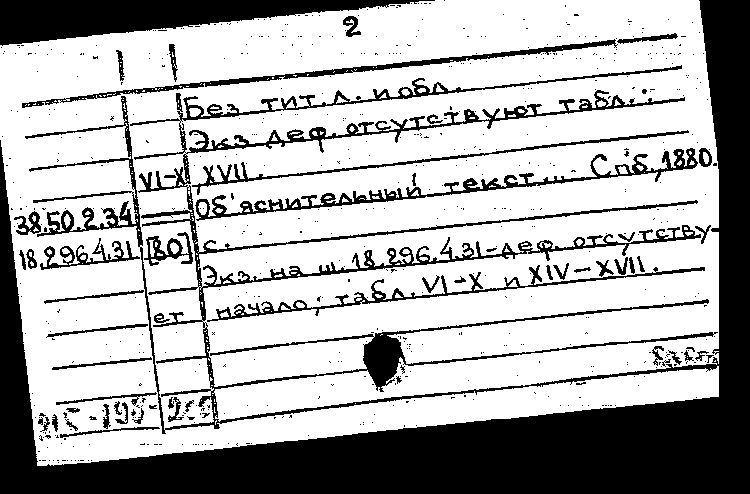 2
Без тит. л. и обл.
Экз деф. отсутствуют табл.:
VI-X, XVII.
38.50.2.34 Об'яснительный текст... Спб., 1880.
18.296.4.31 [80] с.
Экз. на ш. 18.296.4.31-деф. отсутству-
ет начало; табл. VI-X и XIV-XVII.